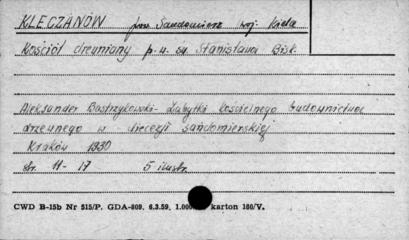 KLECZANÓW pow. Sandomierz woj. Kielce
Kościół drewniany p.w. św. Stanisława Bisk.
Aleksander Bastrzykowski - Zabytki kościelnego budownictwa
drzewnego w diecezji sandomierskiej
Kraków 1930
str. 11-17 5 ilustr.
CWD B-15b Nr 515/P. GDA-809. 6.3.59. 1.000 karton 180/V.